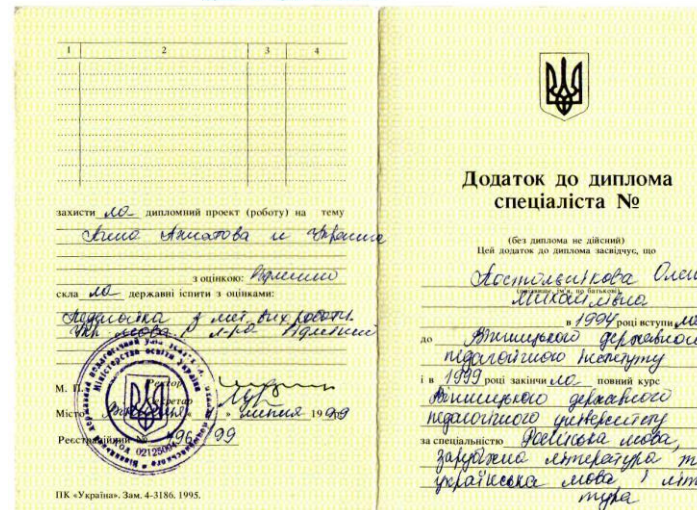 1 2 3 4
захисти ла дипломний проект (роботу) на тему
Анна Ахматова и Украина
з оцінкою: Відмінно
скла ла державні іспити з оцінками:
Педагогіка з мет. вих. роботи
Укр. мова і л-ра Відмінно
М. П. Ректор
Секретар
Місто « » липня 1999
Реєстраційний № 96/99
Міністерство освіти України
02125004
ПК «Україна». Зам. 4-3186. 1995.
Додаток до диплома
спеціаліста №
(без диплома не дійсний)
Цей додаток до диплома засвідчує, що
Михайлівна
(прізвище, ім'я, по батькові)
в 1994 році вступи ла
до Вінницького державного
педагогічного інституту
і в 1999 році закінчи ла повний курс
Вінницького державного
педагогічного університету
за спеціальністю Російська мова,
зарубіжна література т
українська мова і літ
тура